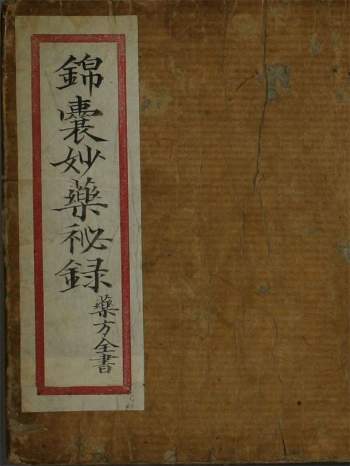 錦囊妙藥秘録
藥方全書